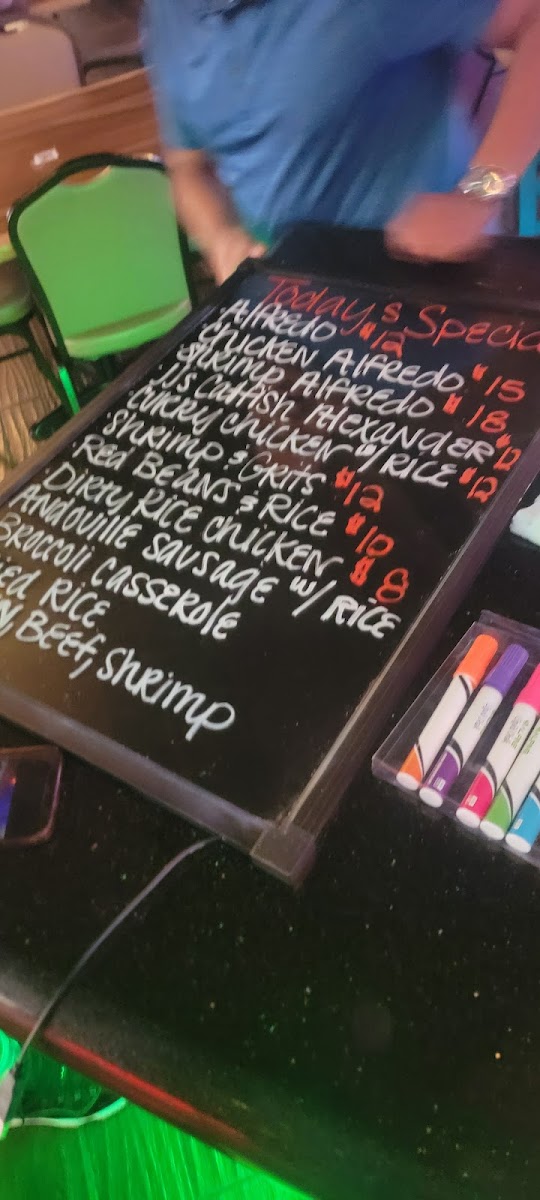 Today's Specia
· Alfredo $12
· Chicken Alfredo $15
· Shrimp Alfredo $18
· JJ's Catfish Alexander $12
· Curry Chicken w/ Rice $12
· Shrimp & Grits $12
· Red Beans & Rice $10
· Dirty Rice Chicken $8
Andouille Sausage w/ Rice
Broccoli Casserole
Rice
Beef, Shrimp